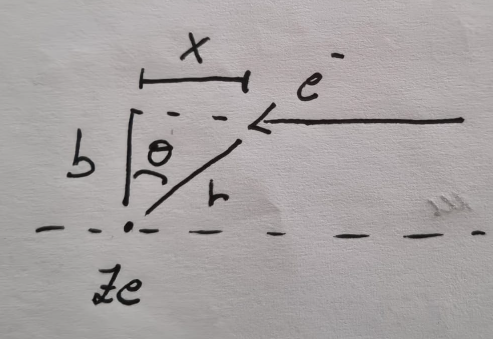 x
e⁻
b
θ
r
Ze